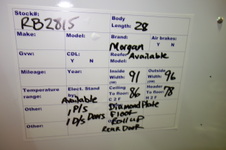 Stock#: RB2815 Body Length: 28
Make: Model: Brand: Morgan Air brakes: Y N
Gvw: CDL: Y N Reefer Model: Available
Mileage: Year: Inside Width 91 Outside Width 96
Temperature range: Elect. Stand by Available Ceiling To floor 86 Header To floor 78
Other: 1 P/S Diamond Plate Floor
Other: 1 D/S Doors Roll up
Rear Door